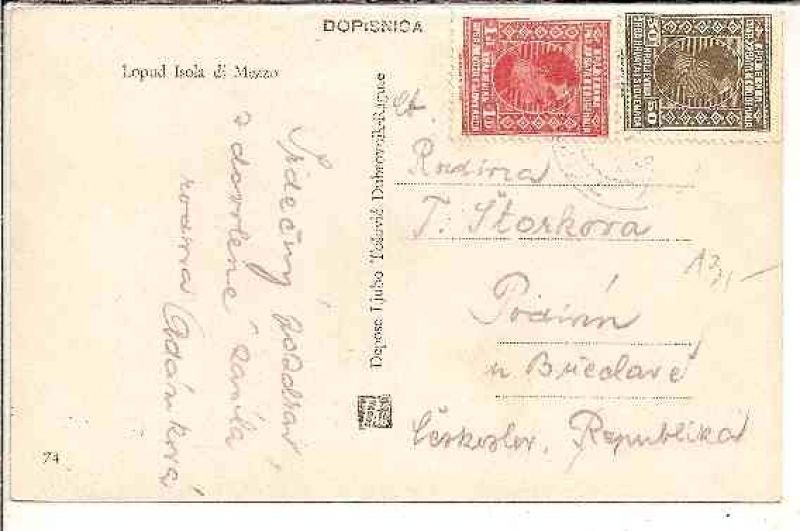 DOPISNICA
Lopud Isola di Mezzo
Srdečný pozdrav
z dovolené
rodina Adámková
Deposa Ljubo Tošović Dubrovnik-Raguse
Ct.
Rodina
T. Štorkova
u Břeclavě
Českoslov. Republika
74